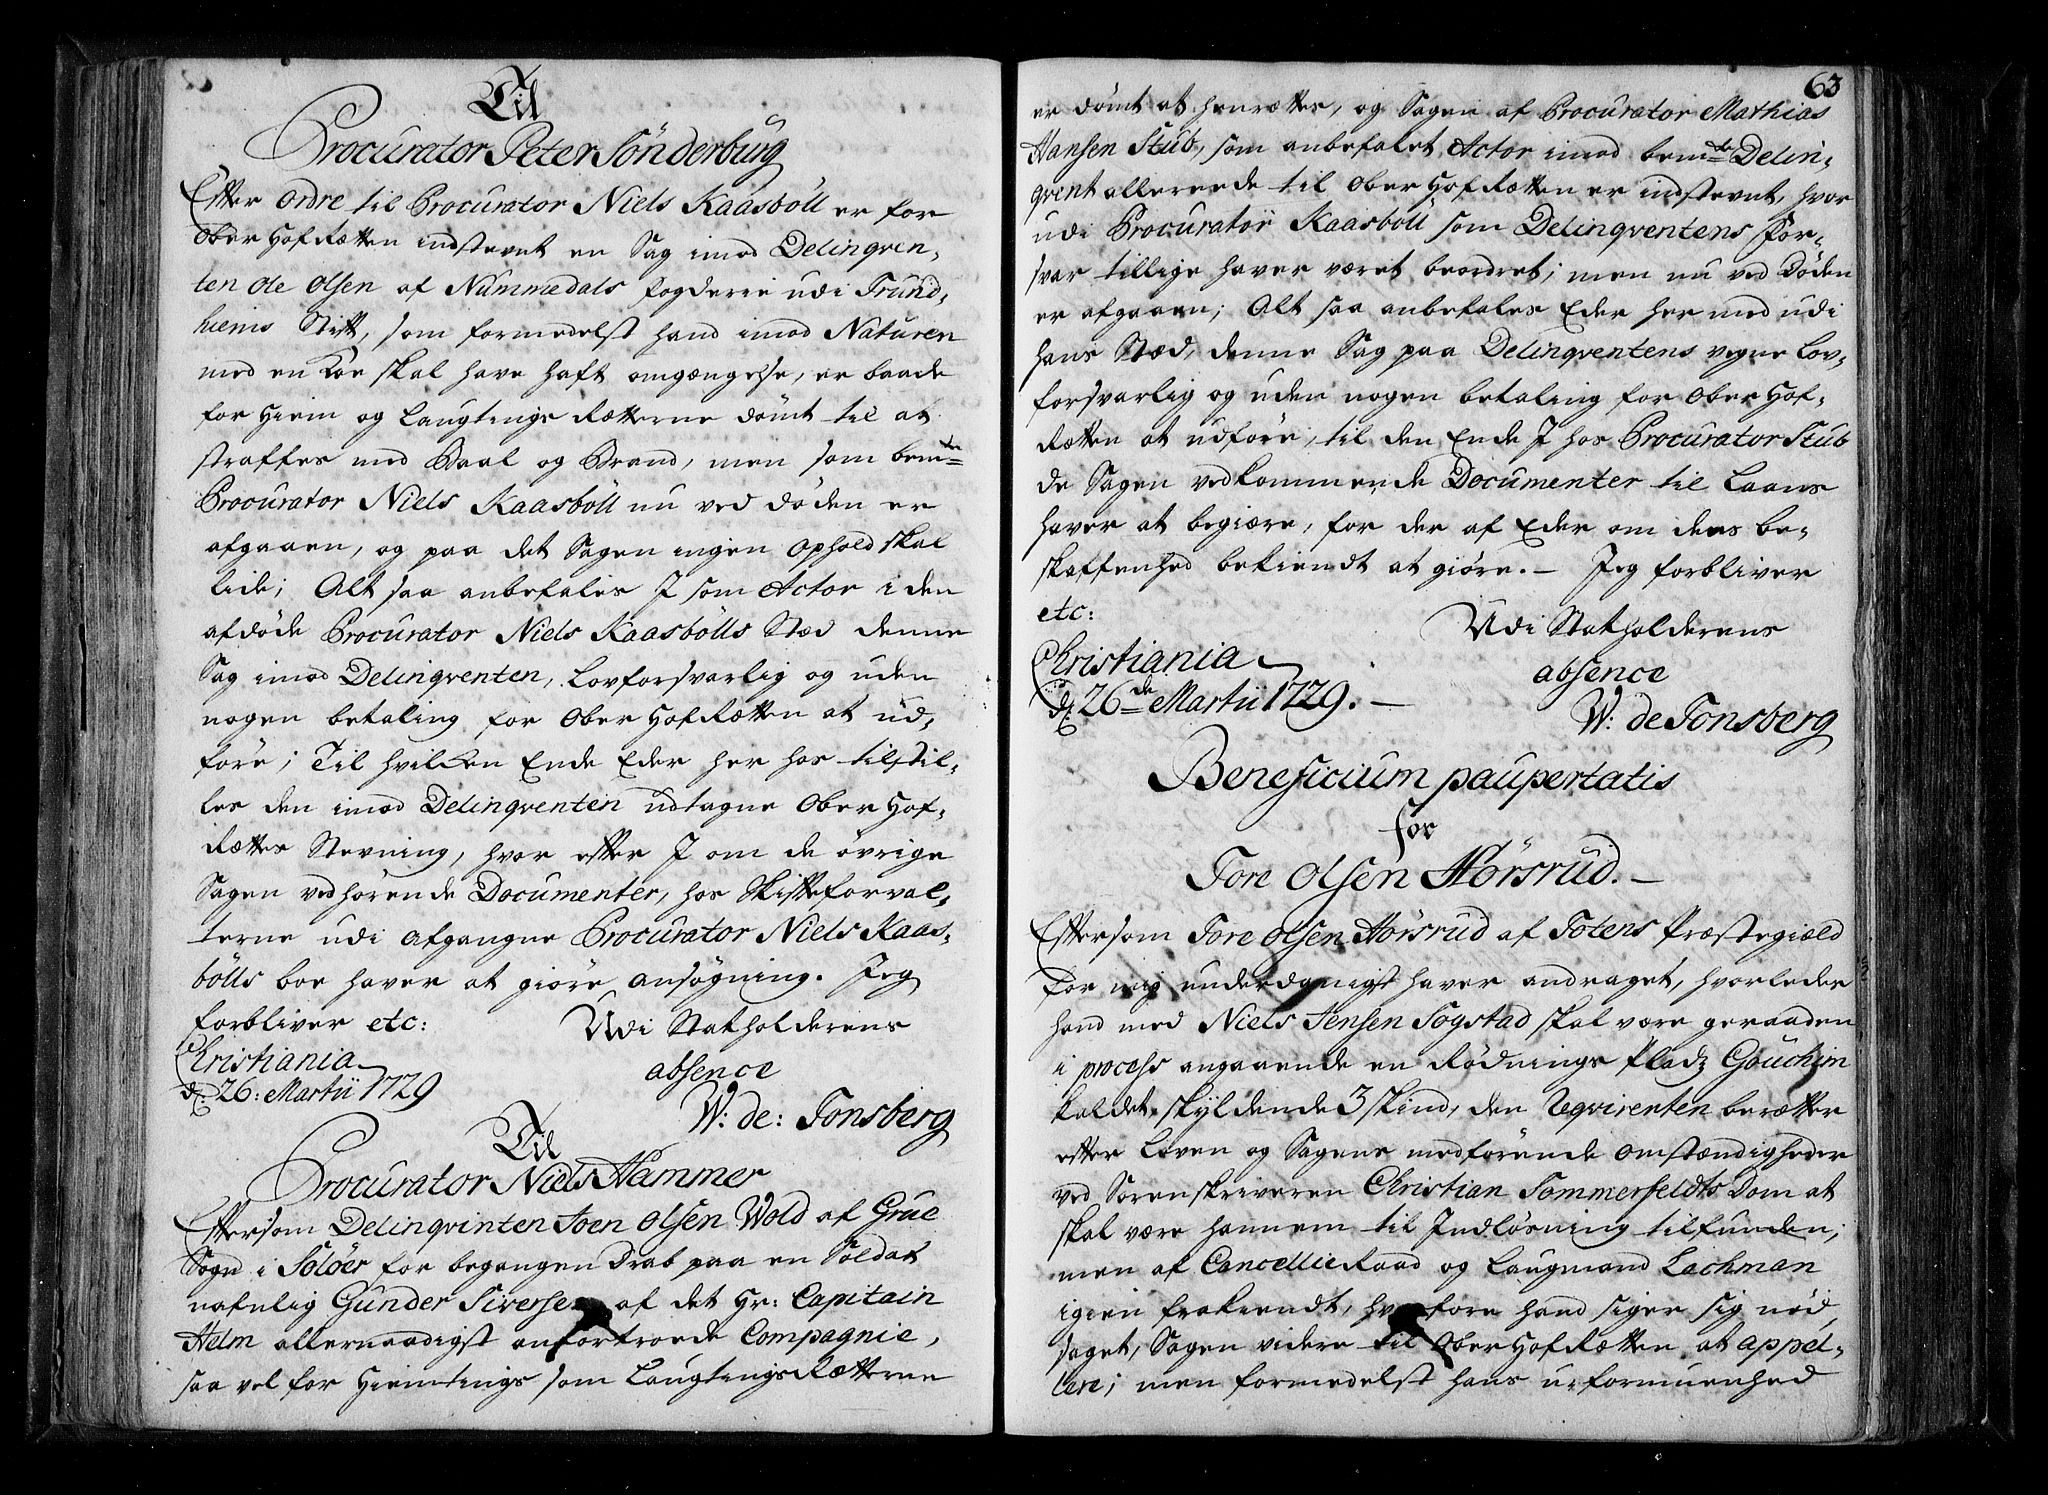 Til
Procurator Peter Sönderburg
Efter Ordre til Procurator Niels Kaasböll er for
Ober Hof Rætten indstevnt en Sag imod Delinqven,
ten Ole Olsen af Nummedals fogderie udi Trund,
hiems Stift, som formedelst hand imod Naturen
med en Koe skal have haft omgængelse, er baade
for Hiem og Laugtings Rætterne dömt til at
straffes med Baal og Brand, men som bemte
Procurator Niels Kaasböll nu ved döden er
afgaaen, og paa det Sagen ingen Ophold skal
lide; Alt saa anbefales I som Actor i den
afdöde Procurator Niels Kaasbölls Stæd denne
Sag imod Delinqventen, Lovforsvarlig og uden
nogen betaling for Ober Hof Rætten at ud,
före; Til hvilken Ende Eder her hos tilstil,
les den imod Delinqventen udtagne Ober Hof,
Rættes Stevning, hvor efter I om de övrige
Sagen vedhörende Documenter, hos Skifteforval,
terne udi Afgangne Procurator Niels Kaas,
bölls boe haver at giöre ansögning. Jeg
forbliver etc: Udi Statholderens
Christiania absence
d: 26: Martii 1729 W: de: Tonsberg
Til
Procurator Niels Hammer
Eftersom Delinqvinten Joen Olsen Wold af Grue
Sogn i Solöer for begangen Drab paa en Soldat
nafnlig Gunder Siversen af det Hr: Capitain
Helm allernaadigst anfortroede Compagnie,
saa vel for Hiemtings som Laugtings Rætterne
63
er dömt at henrættes, og Sagen af Procurator Mathias
Hansen Stub, som anbefalet Actor imod bemte Delin,
qvent allereede til Ober Hof Rætten er indstevnt, hvor
udi Procurator Kaasböll som Delinqventens For,
svar tillige haver været beordret; men nu ved Döden
er afgaaen; Alt saa anbefales Eder her med udi
hans Stæd, denne Sag paa Delinqventens vegne Lov,
forsvarlig og uden nogen betaling for Ober Hof,
Rætten at udföre, til den Ende I hos Procurator Stub
de Sagen vedkommende Documenter til Laans
haver at begiære, for der af Eder om dens be,
skaffenhed bekiendt at giöre. — Jeg forbliver
etc: Udi Statholderens
Christiania absence
d: 26de Martii 1729. — W: de Tonsberg
Beneficium paupertatis
for
Tore Olsen Hörsrud. —
Eftersom Tore Olsen Hörsrud af Totens Præstegiæld
for mig underdanigst haver andraget, hvorledes
hand med Niels Jensen Sogstad skal være geraaden
i process angaaende en Rödnings Pladz Gouchim
kaldet, skyldende 3 skind, den Reqvirenten beretter
efter Loven og Sagens medförende Omstændigheder
ved Sorenskriveren Christian Sommerfeldts Dom at
skal være hannem til Indlösning tilfunden;
men af Cancellie Raad og Laugmand Lachman
igien frakiendt, hvorfore hand siger sig nöd,
saget, Sagen videre til Ober Hof Rætten at appel,
lere; men formedelst hans uformuenhed